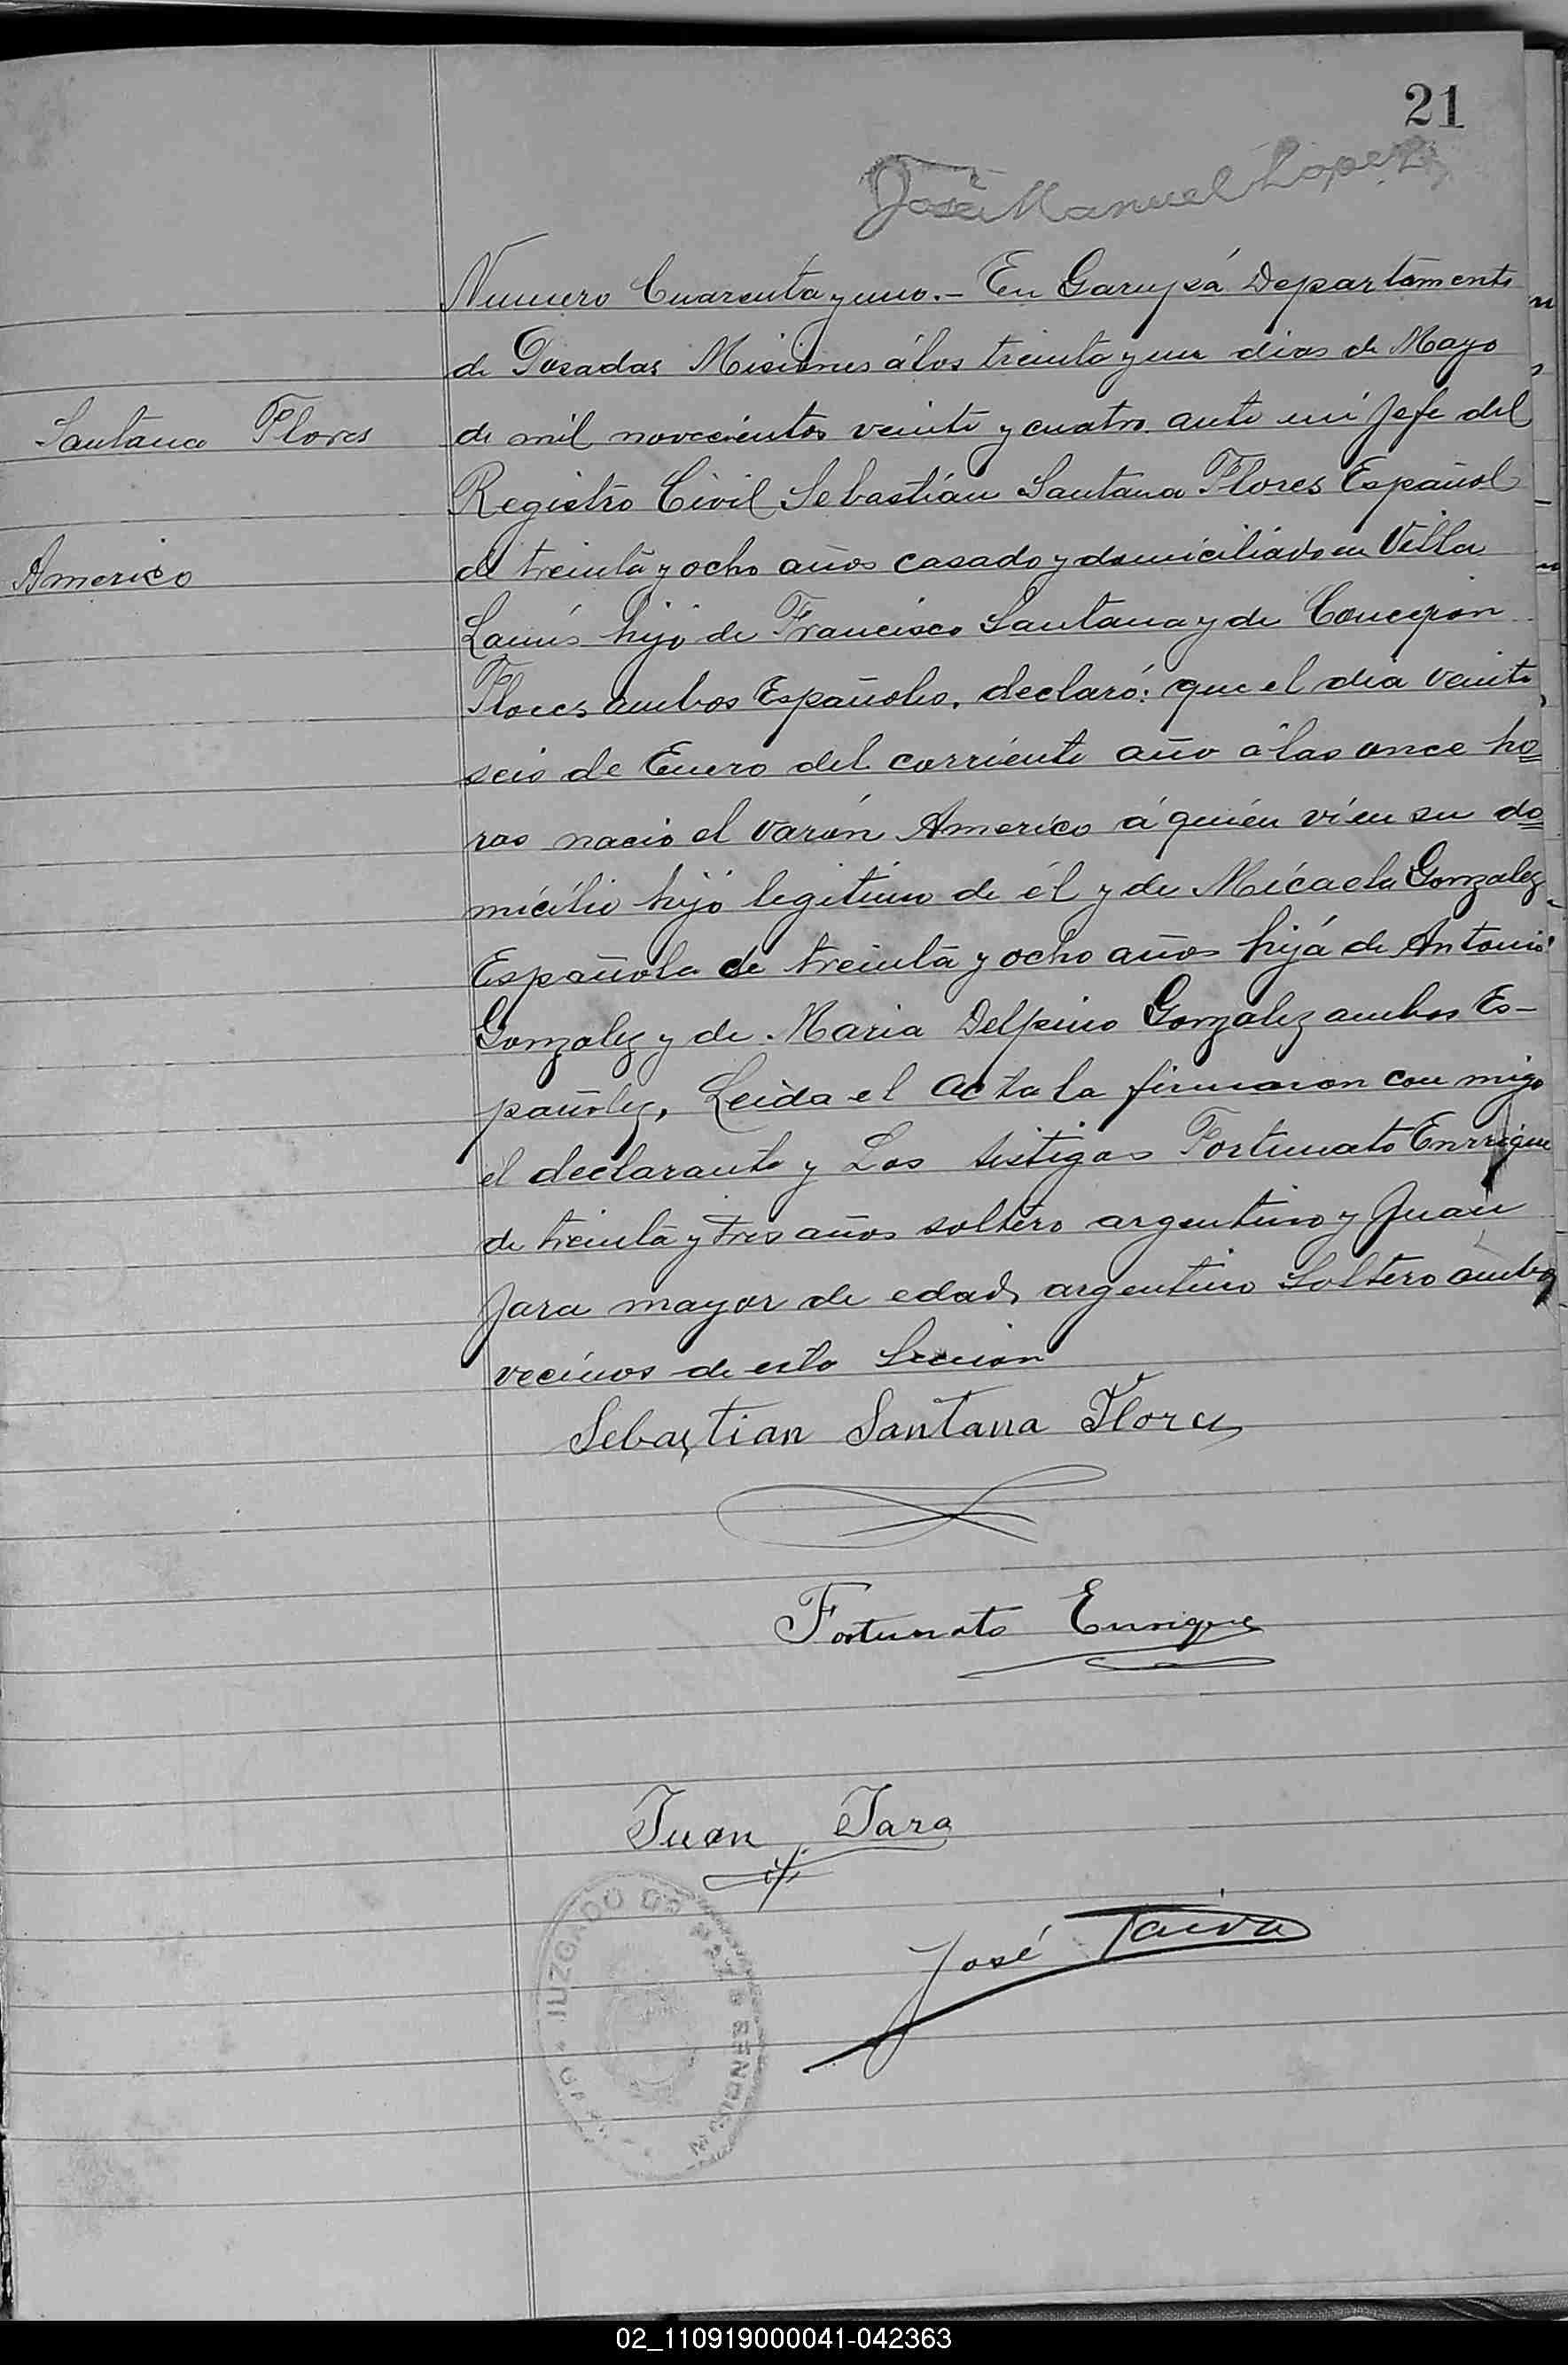 21
José Manuel Lopez
Numero Cuarenta y uno.- En Garupá Departamento
de Posadas Misiones á los treinta y un dias de Mayo
Santana Flores
de mil novecientos veinte y cuatro ante mi Jefe del
Registro Civil Sebastián Santana Flores Español
Americo
de treinta y ocho años casado y domiciliado en Villa
Lanús hijo de Francisco Santana y de Concepion
Flores ambos Españoles, declaró: que el dia veinte
seis de Enero del corriente año a las once ho=
ras nacio el varón Americo á quién ví en su do=
micilio hijo legitimo de él y de Micaela Gonzalez
Española de treinta y ocho años hija de Antonio
Gonzalez y de Maria Delpino Gonzalez ambos Es-
pañoles, Leida el acta la firmaron con migo
el declarante y Los testigos Fortunato Enrrique
de treinta y tres años soltero argentino y Juan
Jara mayor de edad argentino Soltero ambos
vecinos de esta Seccion
Sebastian Santana Flores
Fortunato Enrrique
Juan Jara
José Paiva
JUZGADO DE PAZ
MISIONES
02_110919000041-042363